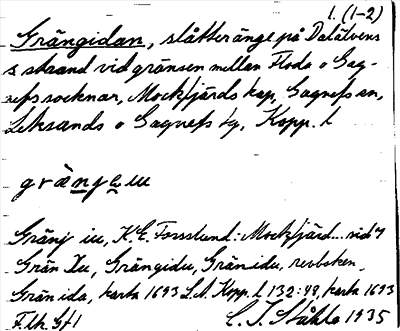 1. (1-2)
Grängidan, slåtteränge på Dalälvens
s strand vid gränsen mellan Floda o Gag-
nefs socknar, Mockfjärds kap, Gagnefs sn,
Leksands o Gagnefs tg, Kopp. l
Gränj iu, K.E. Forsslund: Mockfjärd... vid
Grän Idu, Grängidu, Gränidu, renboken
Gränida, karta 1693 L.A. Kopp. l 132:99, karta 1693
C.I. Ståhle 1935